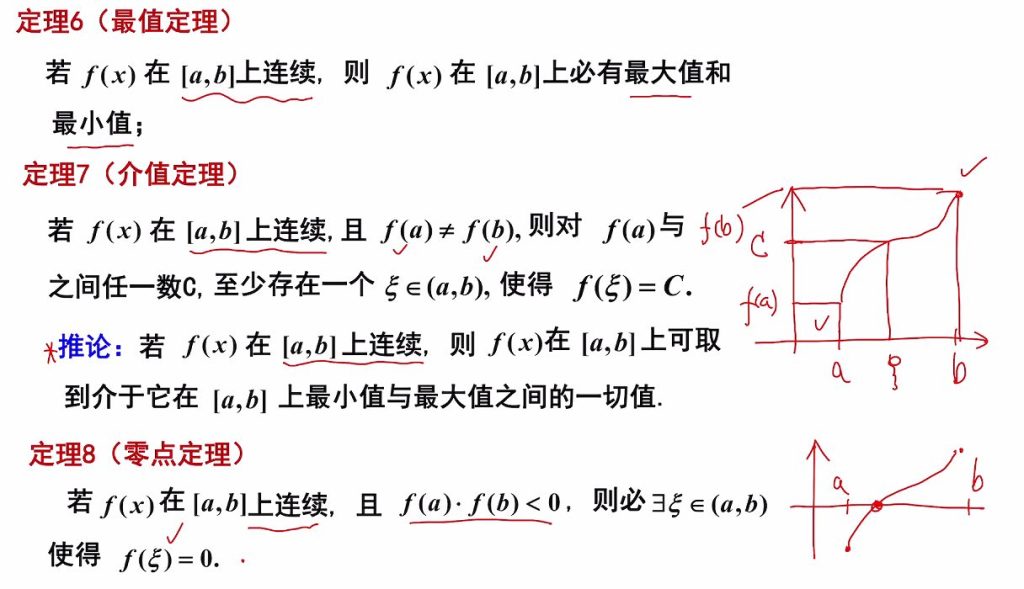 定理6（最值定理）
若 f(x) 在 [a,b]上连续, 则 f(x) 在 [a,b]上必有最大值和
最小值；
定理7（介值定理）
若 f(x) 在 [a,b] 上连续, 且 f(a) ≠ f(b), 则对 f(a) 与
之间任一数C, 至少存在一个 ξ∈(a,b), 使得 f(ξ) = C.
*推论：若 f(x) 在 [a,b] 上连续, 则 f(x)在 [a,b] 上可取
到介于它在 [a,b] 上最小值与最大值之间的一切值.
f(b)
C
f(a)
a ξ b
定理8（零点定理）
若 f(x) 在 [a,b]上连续, 且 f(a)·f(b)<0, 则必 ∃ξ∈(a,b)
使得 f(ξ) = 0.
a b